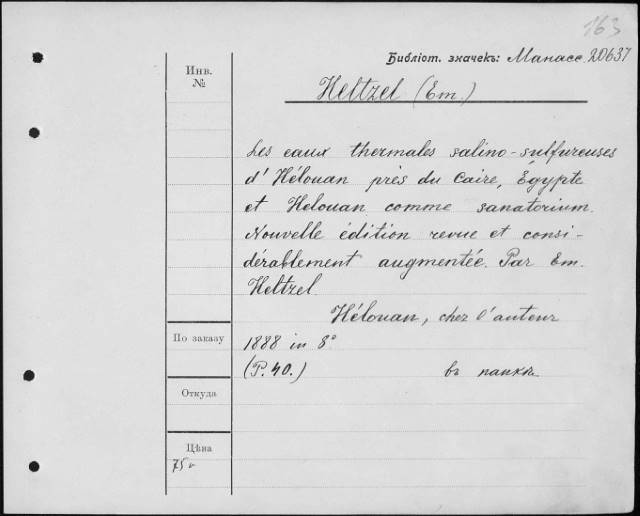 163
Библіот. значекъ: Манасс. 20637
Инв.
№
Heltzel (Em.)
Les eaux thermales salino-sulfureuses
d'Hélouan près du Caire, Égypte
et Helouan comme sanatorium.
Nouvelle édition revue et consi-
dérablement augmentée. Par Em.
Heltzel.
Hélouan, chez l'auteur
По заказу
1888 in 8°
(P. 40.) въ папкѣ.
Откуда
Цѣна
75